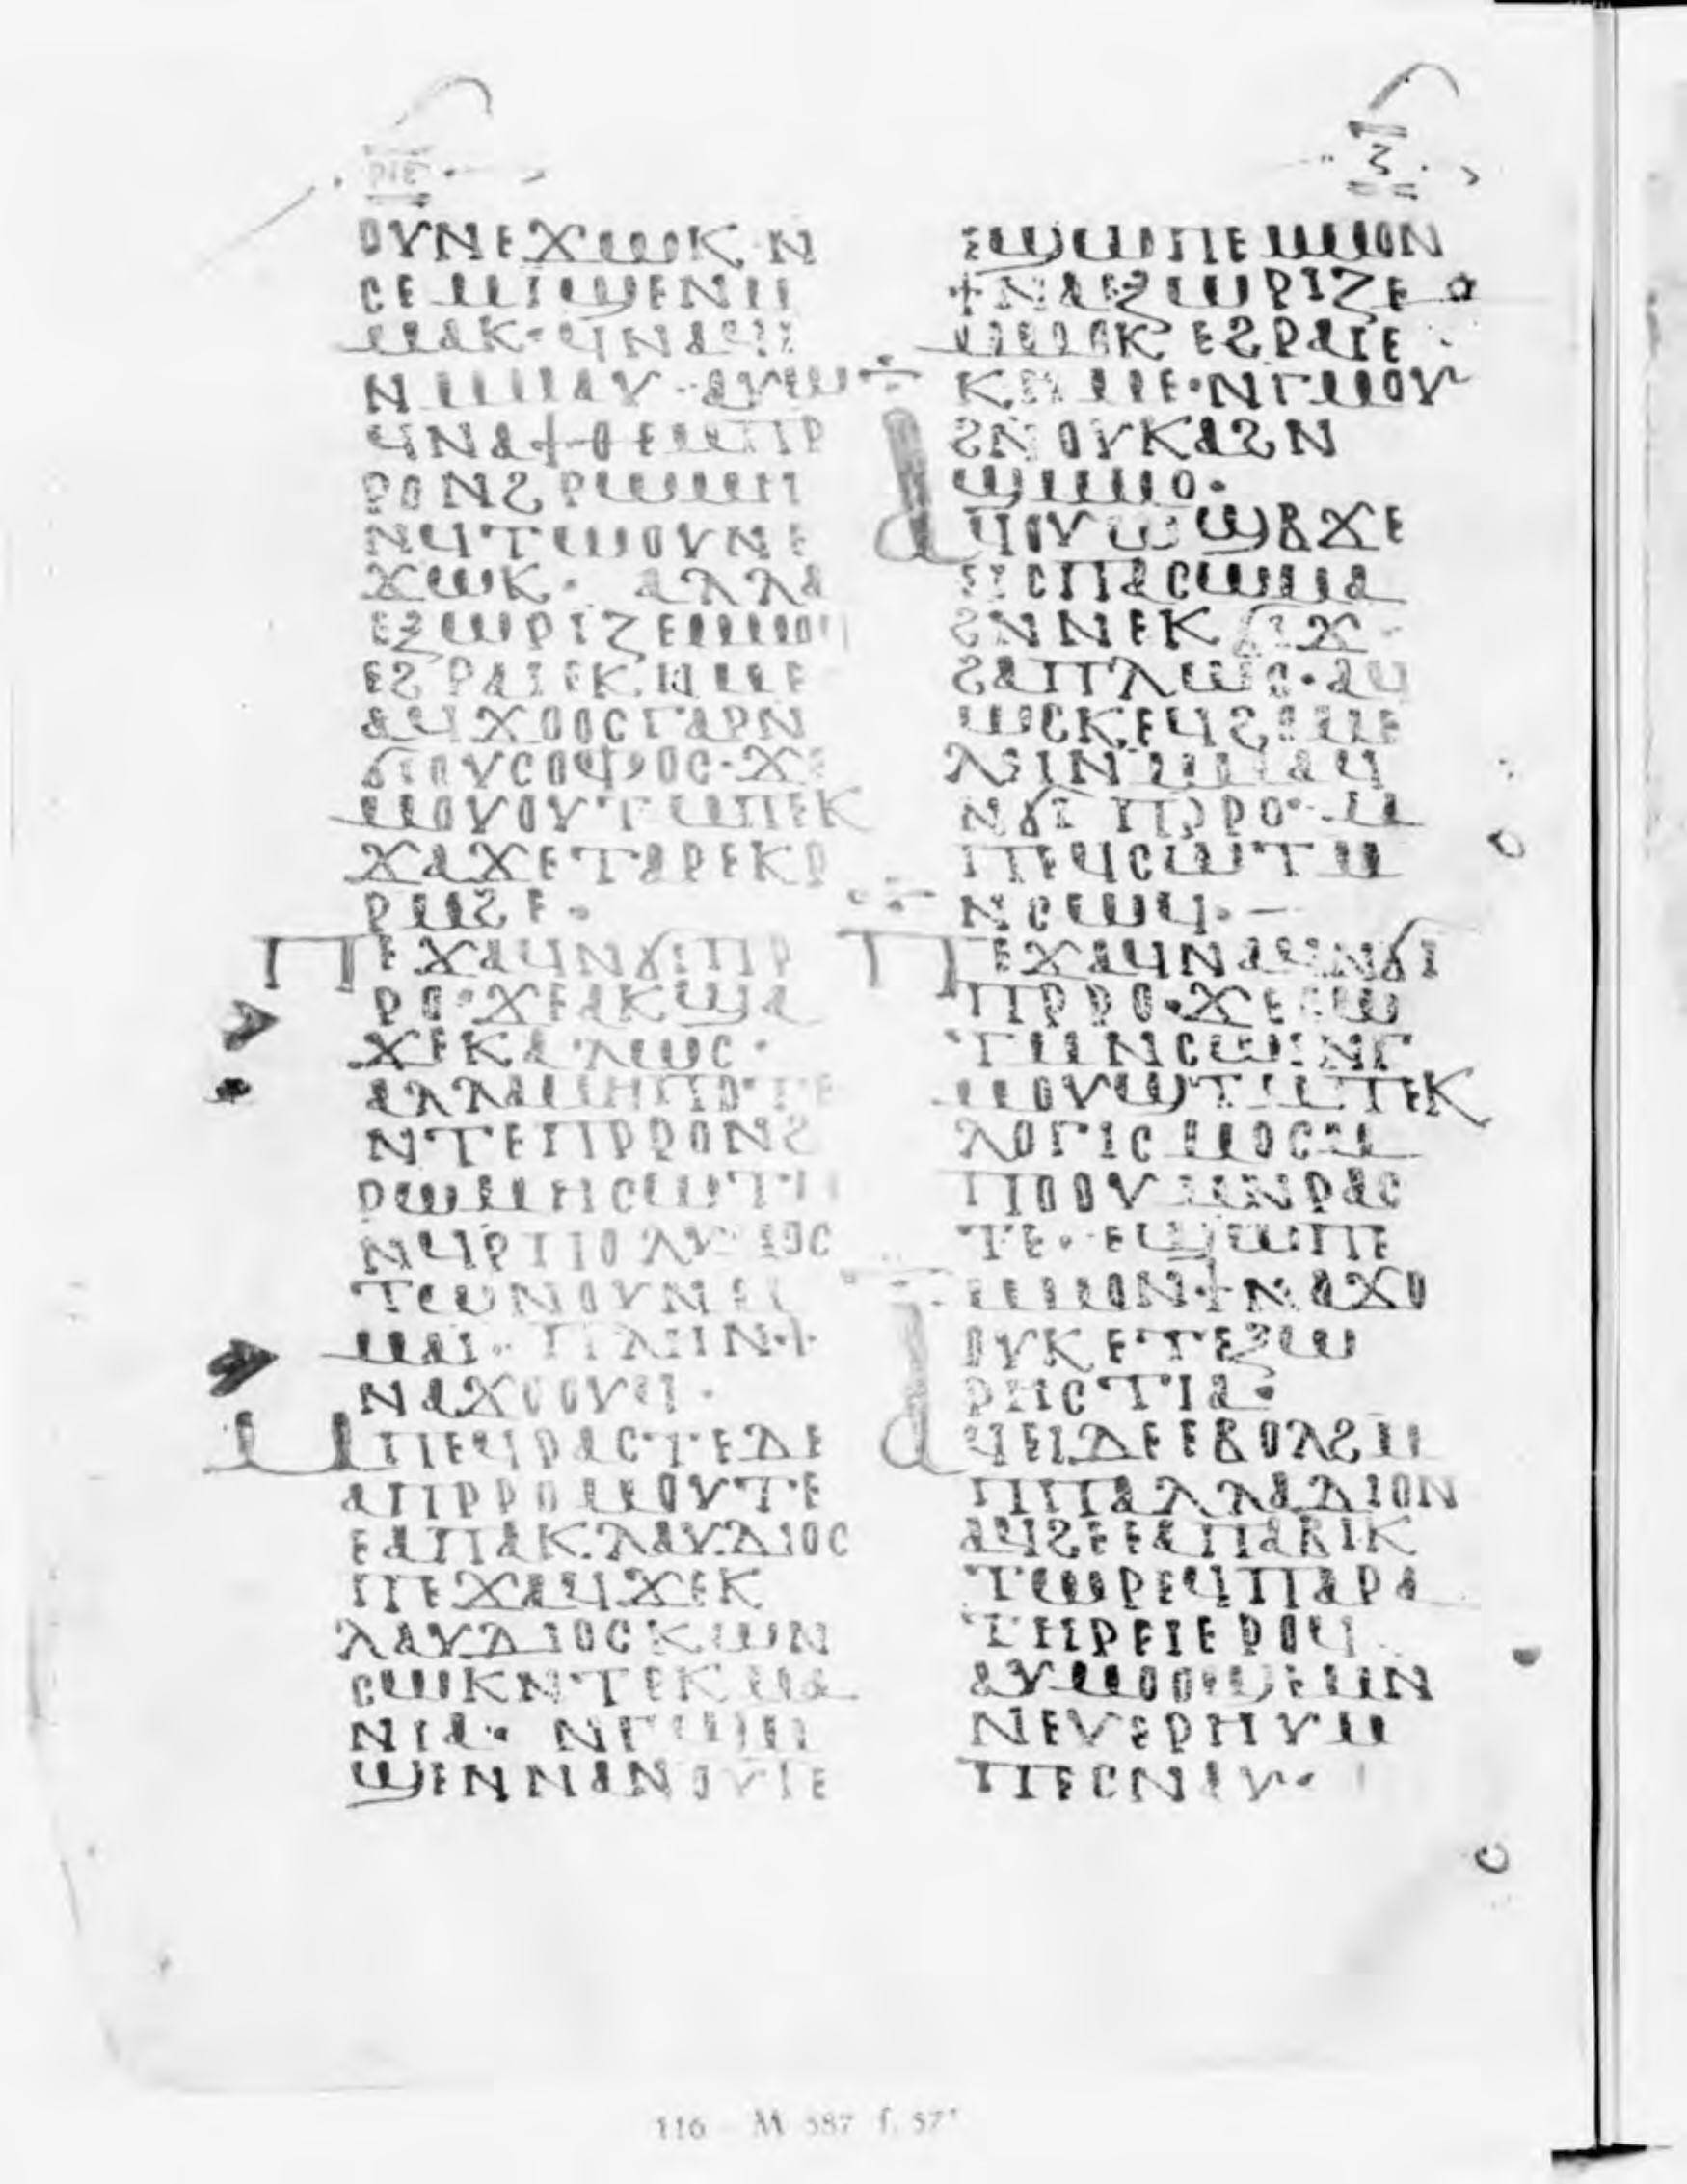 ⲣⲓⲉ
ⲟⲩⲛⲉϫⲱⲕ·ⲛ
ⲥⲉⲙⲓϣⲉⲛⲙ
ⲙⲁⲕ·ϥⲛⲁϥⲓ
ⲛⲙⲙⲁⲩ·ⲁⲩⲱ
ϥⲛⲁϯⲑⲉⲙⲡⲣ
ⲣⲟⲛϩⲣⲱⲙⲏ
ⲛϥⲧⲱⲟⲩⲛⲉ
ϫⲱⲕ· ⲁⲗⲗⲁ
ⲉⲝⲱⲣⲓⲍⲉⲙⲙⲟϥ
ⲉϩⲣⲁⲓⲉⲕⲏⲙⲉ
ⲁϥϫⲟⲟⲥⲅⲁⲣⲛ
ϭⲓⲟⲩⲥⲟⲫⲟⲥ·ϫⲉ
ⲙⲟⲩⲟⲩⲧⲙⲡⲉⲕ
ϫⲁϫⲉⲧⲁⲣⲉⲕⲣ
ⲣⲙϩⲉ·
ⲡⲉϫⲁϥⲛϭⲓⲡⲣ
ⲣⲟ·ϫⲉⲁⲕϣⲁ
ϫⲉⲕⲁⲗⲱⲥ·
ⲁⲗⲗⲁⲙⲏⲡⲟⲧⲉ
ⲛⲧⲉⲡⲣⲣⲟⲛϩ
ⲣⲱⲙⲏⲥⲱⲧⲙ
ⲛϥⲣⲡⲟⲗⲩⲙⲟⲥ
ⲧⲱⲛⲟⲩⲛⲙ
ⲙⲁⲓ· ⲡⲗⲏⲛϯ
ⲛⲁϫⲟⲟⲩϥ·
ⲙⲡⲉϥⲣⲁⲥⲧⲉⲇⲉ
ⲁⲡⲣⲣⲟⲙⲟⲩⲧⲉ
ⲉⲁⲡⲁⲕⲗⲁⲩⲇⲓⲟⲥ
ⲡⲉϫⲁϥϫⲉⲕ
ⲗⲁⲩⲇⲓⲟⲥⲕⲱⲛ
ⲥⲱⲕⲛⲧⲉⲕⲙⲁ
ⲛⲓⲁ· ⲛⲅϣⲙ
ϣⲉⲛⲛⲁⲛⲟⲩⲧⲉ
ⲍ
ⲉϣⲱⲡⲉⲙⲙⲟⲛ
ϯⲛⲁⲉⲝⲱⲣⲓⲍⲉ
ⲙⲙⲟⲕ ⲉϩⲣⲁⲓⲉ
ⲕⲏⲙⲉ·ⲛⲅⲙⲟⲩ
ϩⲛⲟⲩⲕⲁϩⲛ
ϣⲙⲙⲟ·
ⲁϥⲟⲩⲱϣⲃϫⲉ
ⲉⲓⲥⲡⲁⲥⲱⲙⲁ
ϩⲛⲛⲉⲕϭⲓϫ·
ϩⲁⲡⲗⲱⲥ·ⲁϥ
ⲱⲥⲕⲉϥϩⲟⲙⲉ
ⲗⲉⲓⲛⲙⲙⲁϥ
ⲛϭⲓ ⲡⲣⲣⲟ· ⲙ
ⲡⲉϥⲥⲱⲧⲙ
ⲛⲥⲱϥ·—
ⲡⲉϫⲁϥⲛⲁϥⲛϭⲓ
ⲡⲣⲣⲟ·ϫⲉⲥⲱ
ⲧⲙⲛⲥⲱⲓⲛⲅ
ⲙⲟⲩϣⲧⲙⲡⲉⲕ
ⲗⲟⲅⲓⲥⲙⲟⲥⲙ
ⲡⲟⲟⲩⲙⲛⲣⲁⲥ
ⲧⲉ· ⲉϣⲱⲡⲉ
ⲙⲙⲟⲛϯⲛⲁϫⲟ
ⲟⲩⲕⲉⲧⲉⲝⲱ
ⲣⲏⲥⲧⲓⲁ·
ⲁϥⲉⲓⲇⲉⲉⲃⲟⲗϩⲙ
ⲡⲡⲁⲗⲗⲁⲇⲓⲟⲛ
ⲁϥϩⲉⲉⲁⲡⲁⲃⲓⲕ
ⲧⲱⲣⲉϥⲡⲁⲣⲁ
ⲧⲏⲣⲉⲓⲉⲣⲟϥ
ⲁⲩⲙⲟⲟϣⲉⲙⲛ
ⲛⲉⲩⲉⲣⲏⲩⲙ
ⲡⲉⲥⲛⲁⲩ·
116 - M 587 f. 57ʳ